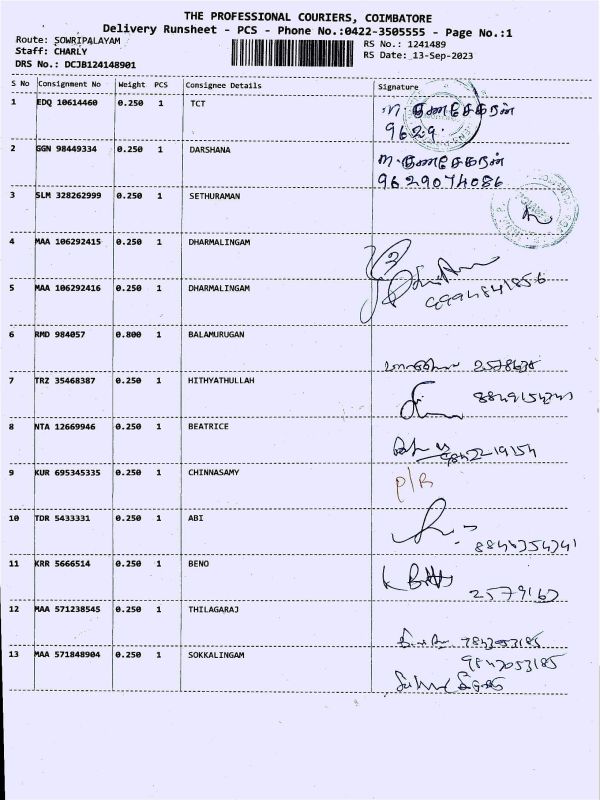 THE PROFESSIONAL COURIERS, COIMBATORE
Delivery Runsheet - PCS - Phone No.:0422-3505555 - Page No.:1
Route: SOWRIPALAYAM
Staff: CHARLY
DRS No.: DCJB124148901
RS No.: 1241489
RS Date: 13-Sep-2023
S No Consignment No Weight PCS Consignee Details Signature
1 EDQ 10614460 0.250 1 TCT ந. குணசேகரன்
9629
2 GGN 98449334 0.250 1 DARSHANA ந. குணசேகரன்
9629074086
3 SLM 328262999 0.250 1 SETHURAMAN
4 MAA 106292415 0.250 1 DHARMALINGAM
5 MAA 106292416 0.250 1 DHARMALINGAM
6 RMD 984057 0.800 1 BALAMURUGAN
7 TRZ 35468387 0.250 1 HITHYATHULLAH
8 NTA 12669946 0.250 1 BEATRICE
9 KUR 695345335 0.250 1 CHINNASAMY P/R
10 TDR 5433331 0.250 1 ABI
11 KRR 5666514 0.250 1 BENO
12 MAA 571238545 0.250 1 THILAGARAJ
13 MAA 571848904 0.250 1 SOKKALINGAM 9842053185